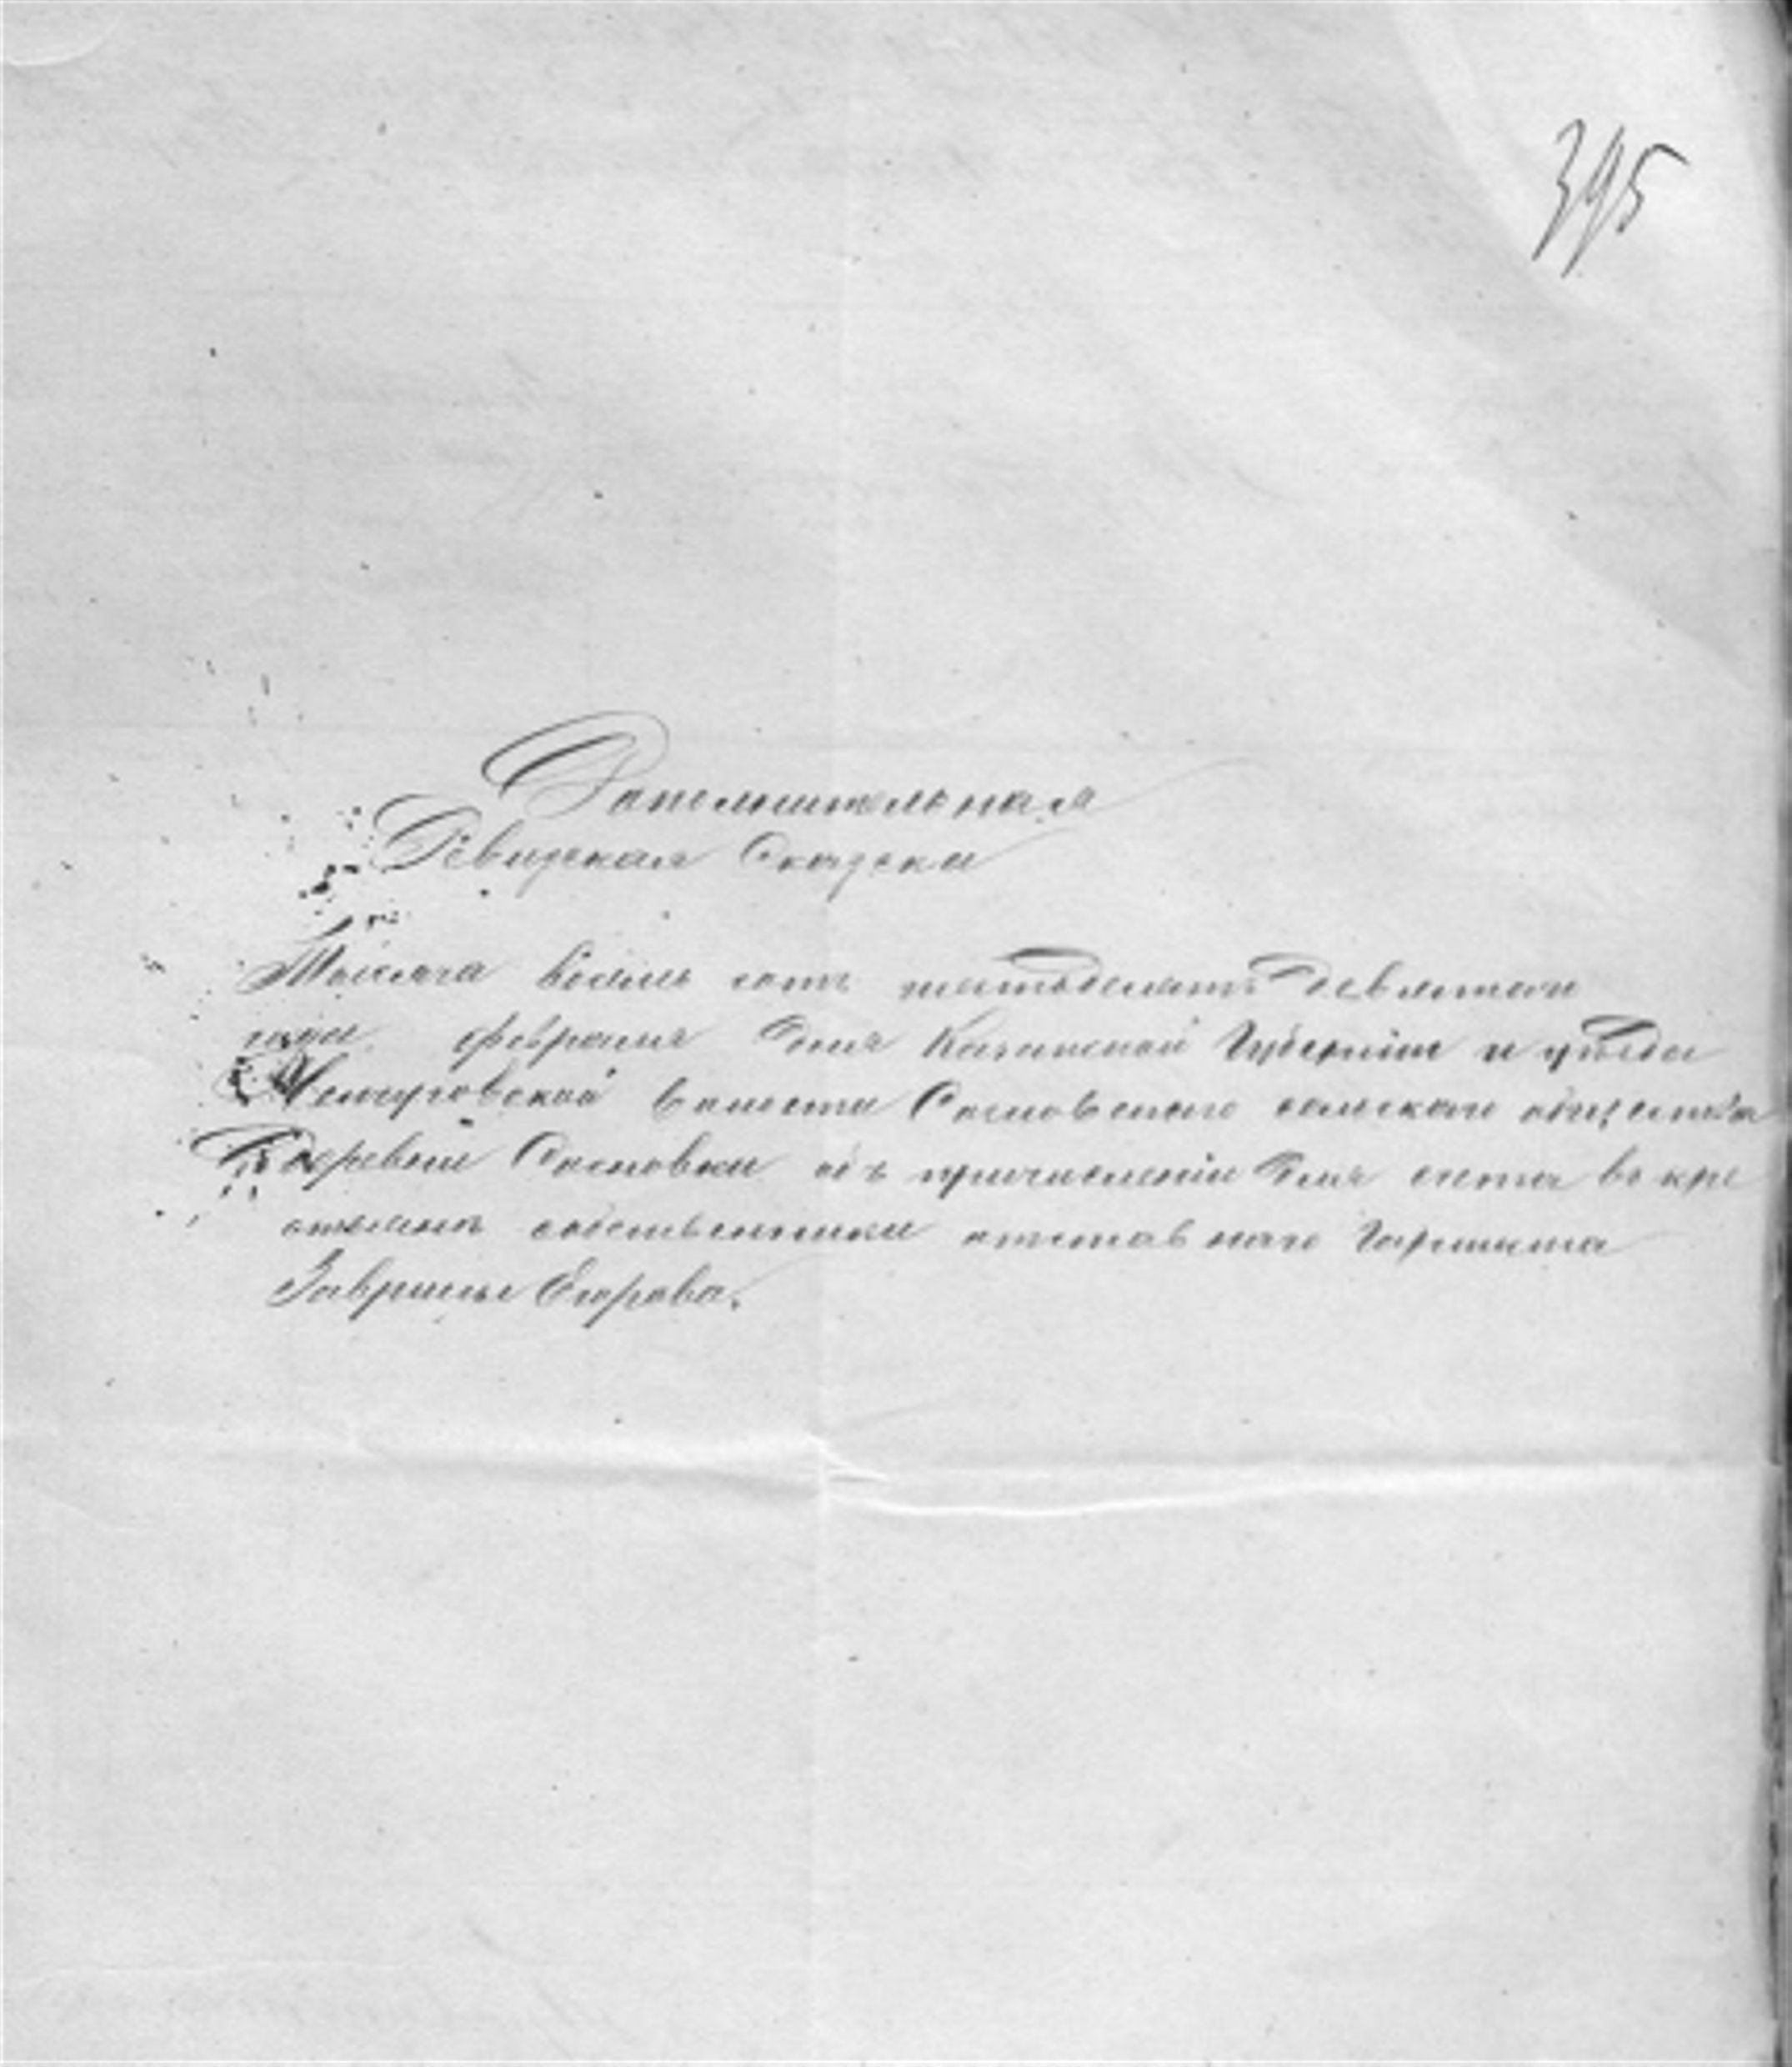 395
Дополнительная
Ревизская Сказка
Тысяча восемь сотъ шестьдесятъ девятаго
года февраля дня Казанской Губерніи и уѣзда
волости Сосновскаго сельскаго общества
деревни Сосновки объ причисленіи для счета въ кре
стьянъ собственники отставнаго
Гаврилы Егорова.